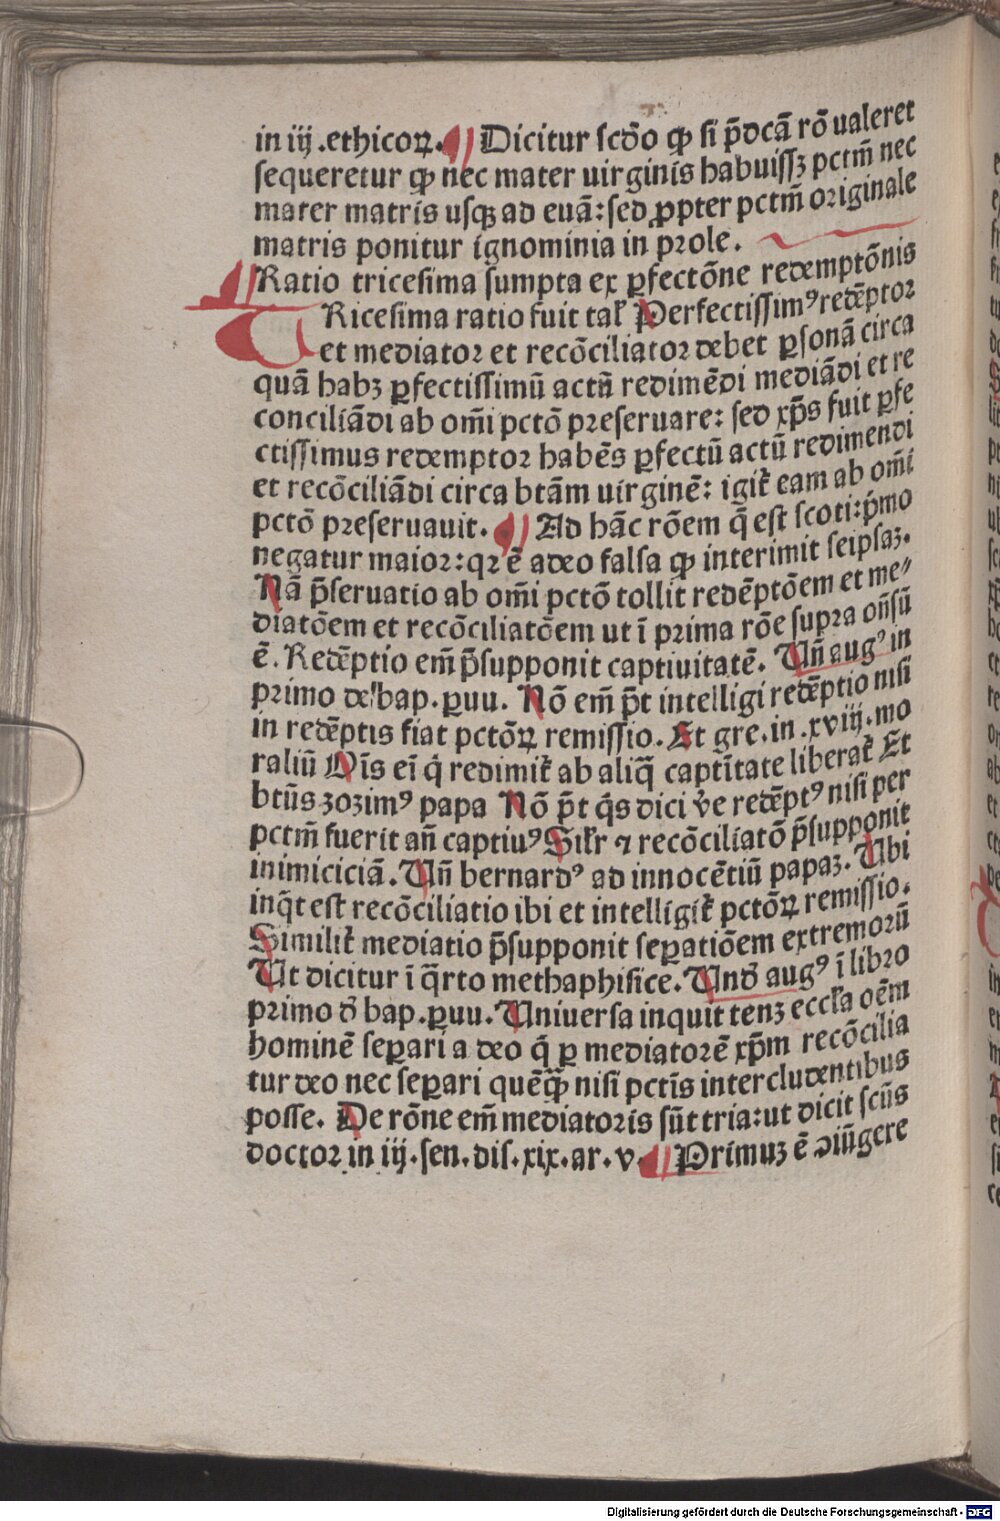 in iij .ethicoꝝ. ¶ Dicitur ſcd̄o ꝙ ſi p̄dcā rō ualeret
ſequeretur ꝙ nec mater uirginis habuiſſꝫ pctm̄ nec
mater matris uſqꝫ ad euā: ſed ꝓpter pctm̄ originale
matris ponitur ignominia in prole.
¶ Ratio triceſima ſumpta ex ꝑfectōne redemptōnis
TRiceſima ratio fuit talꝭ Perfectiſſimꝰ redēptor
et mediator et recōciliator debet ꝑſonā circa
quā habꝫ ꝑfectiſſimū actū redimēdi mediādi et re
conciliādi ab om̄i pctō preſeruare: ſed xp̄s fuit ꝑfe
ctiſſimus redemptor habēs ꝑfectū actū redimendi
et recōciliādi circa btām uirginē: igit̄ eam ab om̄i
pctō preſeruauit. ¶ Ad hāc rōem q̄ eſt ſcoti: p̄mo
negatur maior: qꝛ ē adeo falſa ꝙ interimit ſeipſaꝫ.
Nā p̄ſeruatio ab om̄i pctō tollit redēptōem et me⸗
diatōem et recōciliatōem ut ī prima rōe ſupra on̄ſū
ē. Redēptio em̄ p̄ſupponit captiuitatē. Un̄ augꝰ in
primo de bap. ꝑuu. Nō em̄ p̄t intelligi redēptio niſi
in redēptis fiat pctōꝝ remiſſio. Et gre. in .xviij. mo
raliū Oīs eī q̇ redimit̄ ab aliq̄ captītate liberat̄ Et
btūs zozimꝰ papa Nō p̄t q̇s dici v̄e redēptꝰ niſi per
pctm̄ fuerit an̄ captiuꝰ Silr̄ ⁊ recōciliatō p̄ſupponit
inimiciciā. Un̄ bernardꝰ ad innocētiū papaꝫ. Ubi
inq̄t eſt recōciliatio ibi et intelligit̄ pctōꝝ remiſſio.
Similit̄ mediatio p̄ſupponit ſeꝑatiōem extremorū
Ut dicitur ī q̄rto methaphiſice. Und̄ augꝰ ī libro
primo d̄ bap. ꝑuu. Uniuerſa inquit tenꝫ eccl̄a oēm
hominē ſeꝑari a deo q̄ ꝑ mediatorē xp̄m recōcilia
tur deo nec ſeꝑari quēq̄ꝫ niſi pctīs intercludentibus
poſſe. De rōne em̄ mediatoris ſūt tria: ut dicit ſcūs
doctor in iij. ſen. diſ. xix. ar. v. ¶ Primuꝫ ē ↄiūgere
Digitalisierung gefördert durch die Deutsche Forschungsgemeinschaft - DFG